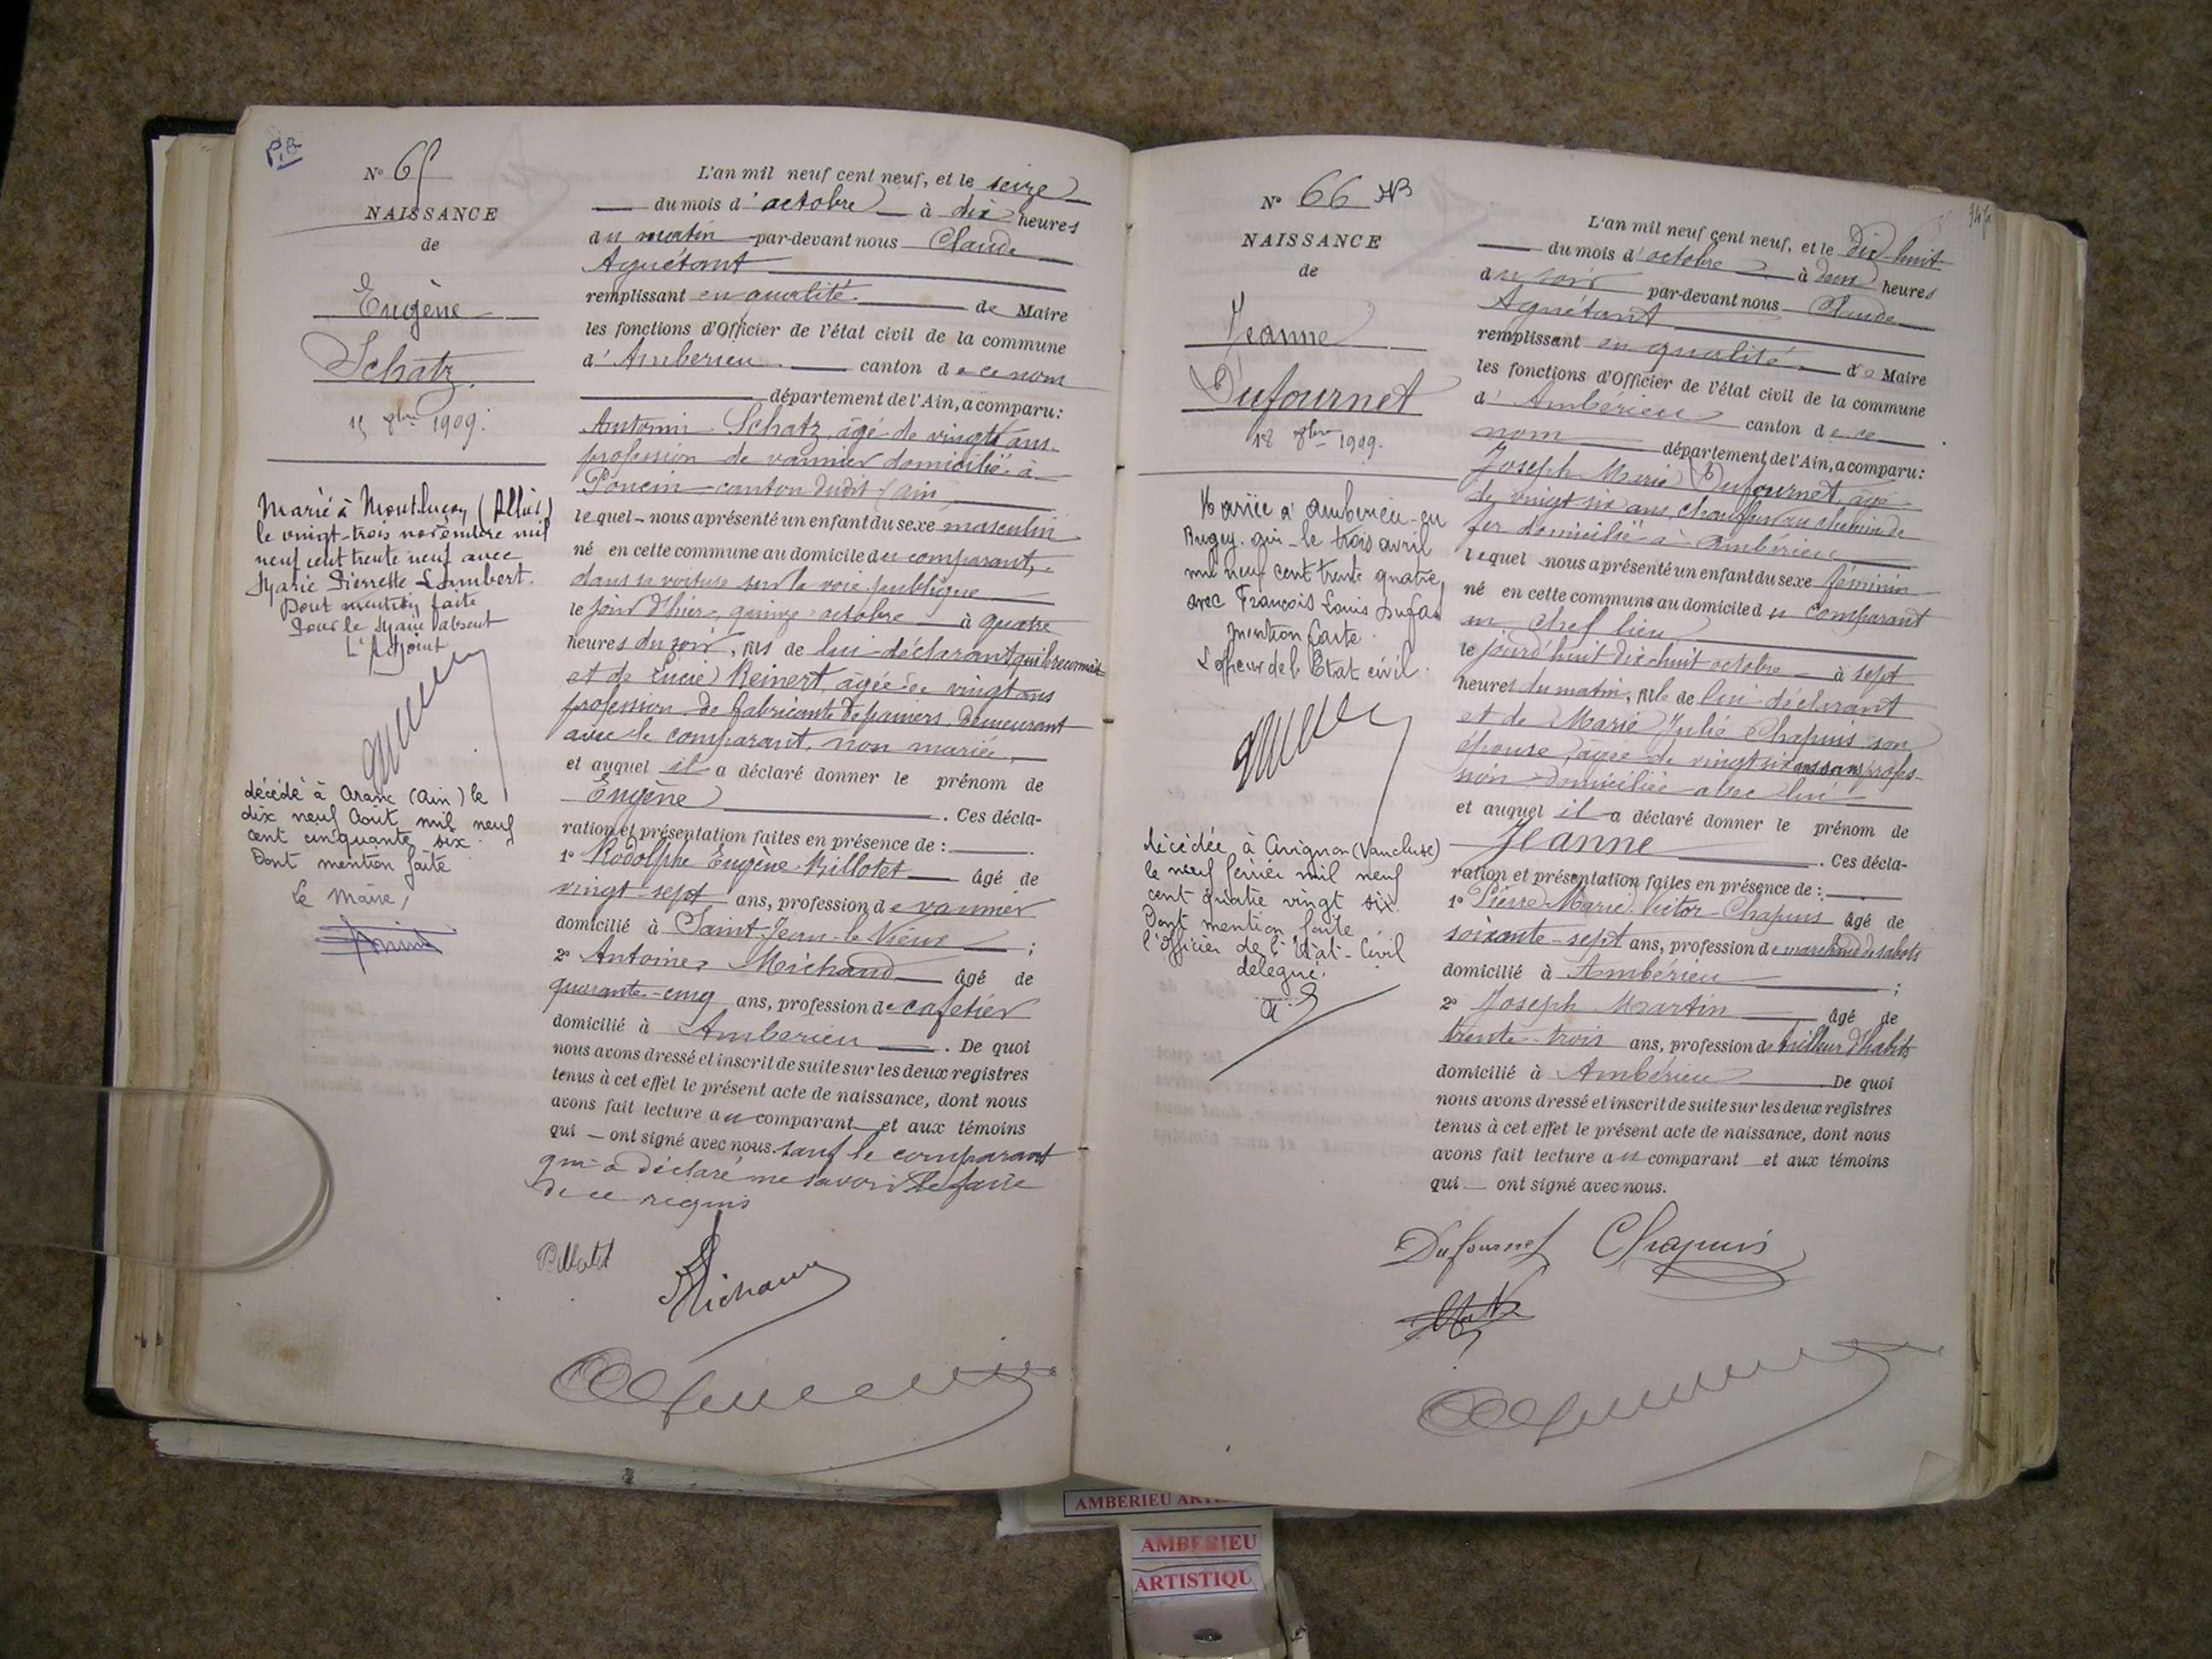 N° 65
NAISSANCE
de
Eugène
Schatz
15 8bre 1909.
Marié à Montluçon (Allier)
le vingt-trois novembre mil
neuf cent trente neuf avec
Marie Pierrette Lambert.
Dont mention faite
Pour le Maire absent
L'Adjoint
décédé à Aranc (Ain) le
dix neuf Aout mil neuf
cent cinquante six.
Dont mention faite
Le Maire,
L'an mil neuf cent neuf, et le seize
du mois d'octobre à dix heures
du matin par-devant nous Claude
Aguétant
remplissant en qualité de Maire
les fonctions d'Officier de l'état civil de la commune
d'Amberieu canton de ce nom
département de l'Ain, a comparu:
Antonin Schatz, âgé de vingt ans
profession de vannier domicilié à
Poncin canton dudit (Ain
lequel nous a présenté un enfant du sexe masculin
né en cette commune au domicile du comparant,
dans sa voiture sur la voie publique
le jour d'hier, quinze octobre à quatre
heures du soir, fils de lui déclarant qui le reconnait
et de Lucie Reinert, âgée de vingt ans
profession de fabricante de paniers, demeurant
avec le comparant, non mariée,
et auquel il a déclaré donner le prénom de
Eugène. Ces décla-
ration et présentation faites en présence de :
1° Rodolphe Eugène Billotet âgé de
vingt-sept ans, profession de vannier
domicilié à Saint-Jean-le-Vieux ;
2° Antoine Michaud âgé de
quarante-cinq ans, profession de cafetier
domicilié à Amberieu. De quoi
nous avons dressé et inscrit de suite sur les deux registres
tenus à cet effet le présent acte de naissance, dont nous
avons fait lecture au comparant et aux témoins
qui ont signé avec nous. sauf le comparant
qui a déclaré ne savoir le faire
de ce requis
Billotet
Michaud
N° 66
NAISSANCE
de
Jeanne
Dufournet
18 8bre 1909.
Mariée à Ambérieu-en
Bugey le trois avril
mil neuf cent trente quatre,
avec François Louis
mention faite.
L'officier de l'Etat civil.
décédée à Avignon (Vaucluse)
le neuf février mil neuf
cent quatre vingt six.
Dont mention faite
l'Officier de l'Etat-Civil
délégué.
L'an mil neuf cent neuf, et le dix-huit
du mois d'octobre à deux heures
du soir par-devant nous Claude
Aguétant
remplissant en qualité de Maire
les fonctions d'Officier de l'état civil de la commune
d'Ambérieu canton de ce
nom département de l'Ain, a comparu:
Joseph Marie Dufournet, âgé
de vingt-six ans, chauffeur au chemin de
fer domicilié à Ambérieu
lequel nous a présenté un enfant du sexe féminin
né en cette commune au domicile du comparant
au chef lieu
le jourd'huit dix huit octobre à sept
heures du matin, fille de lui déclarant
et de Marie Julie Chapuis son
épouse, âgée de vingt six ans sans profes-
sion domiciliée avec lui
et auquel il a déclaré donner le prénom de
Jeanne. Ces décla-
ration et présentation faites en présence de :
1° Pierre Marie Victor Chapuis âgé de
soixante-sept ans, profession de marchand de sabots
domicilié à Ambérieu ;
2° Joseph Martin âgé de
trente-trois ans, profession de tailleur d'habits
domicilié à Ambérieu De quoi
nous avons dressé et inscrit de suite sur les deux registres
tenus à cet effet le présent acte de naissance, dont nous
avons fait lecture au comparant et aux témoins
qui ont signé avec nous.
Dufournet Chapuis
AMBERIEU
AMBERIEU
ARTISTIQU